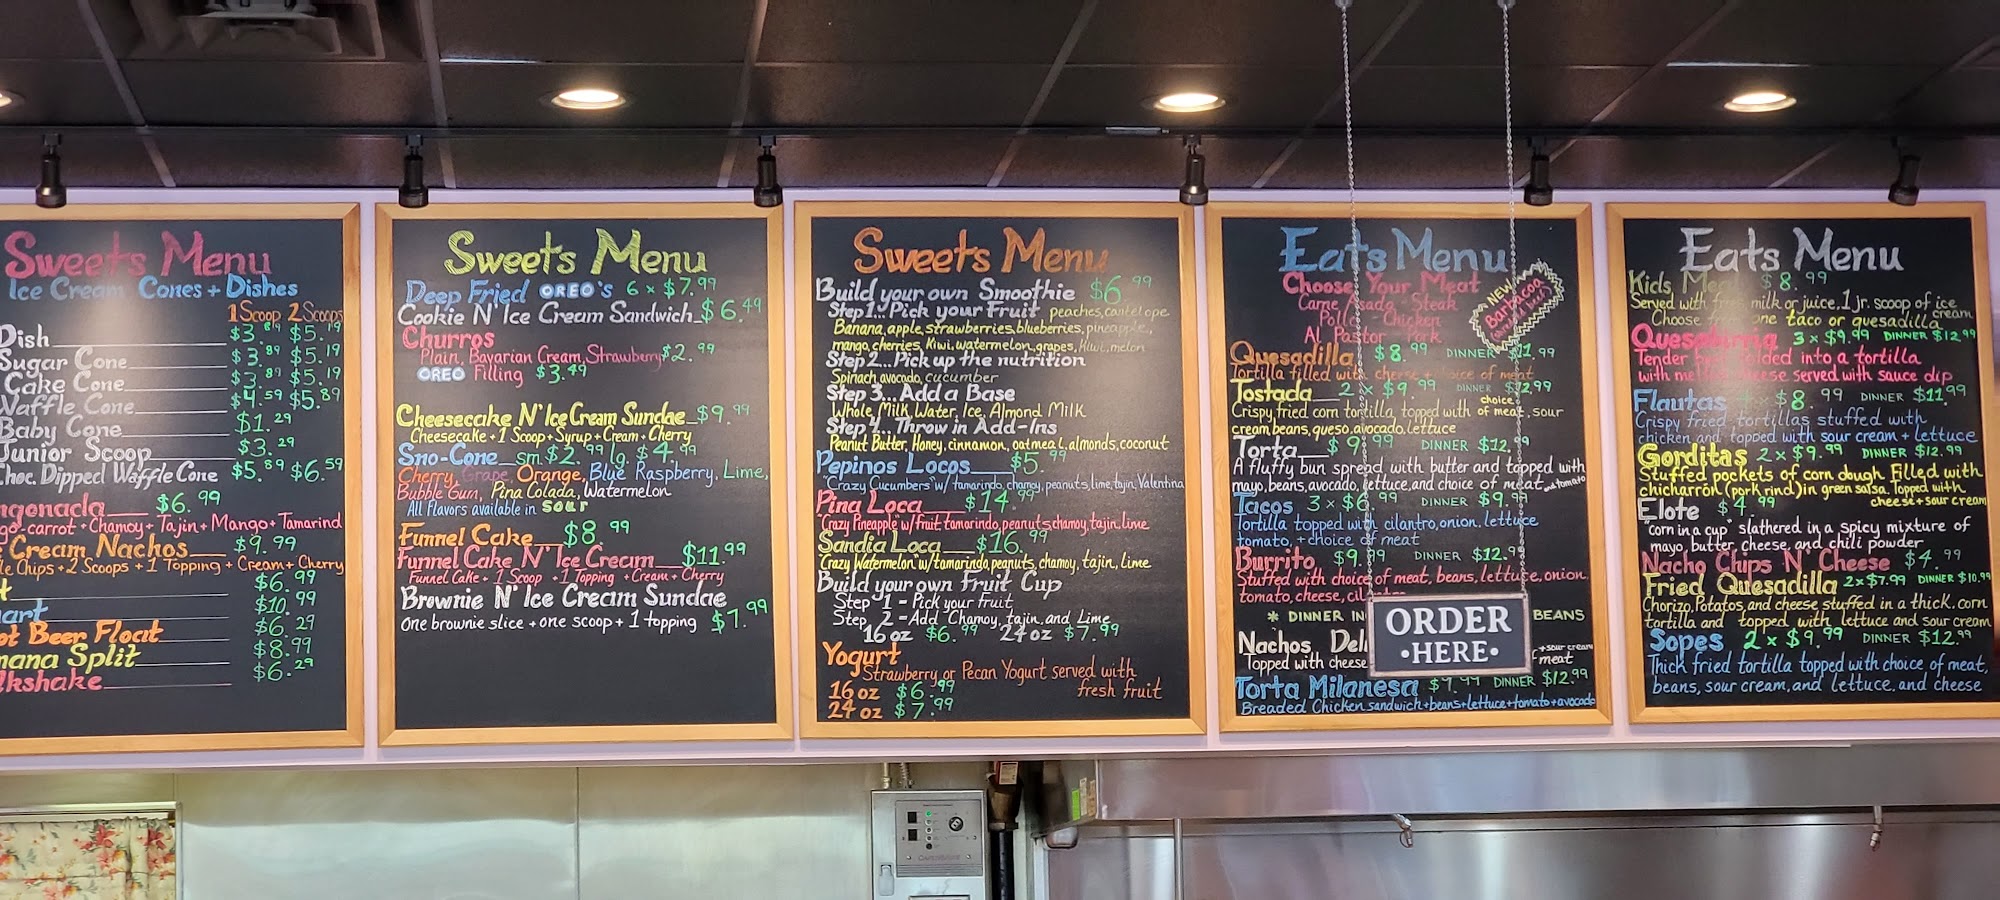 Sweets Menu
Ice Cream Cones + Dishes
1 Scoop 2 Scoops
Dish $3.89 $5.19
Sugar Cone $3.89 $5.19
Cake Cone $3.89 $5.19
Waffle Cone $4.59 $5.89
Baby Cone $1.29
Junior Scoop $3.29
Choc. Dipped Waffle Cone $5.89 $6.59
$6.99
+ Chamoy + Tajin + Mango + Tamarind
Cream Nachos $9.99
Chips + 2 Scoops + 1 Topping + Cream + Cherry
$6.99
$10.99
Beer Float $6.29
Split $8.99
$6.29
Sweets Menu
Deep Fried OREO'S 6 x $7.99
Cookie N' Ice Cream Sandwich $6.49
Churros
Plain, Bavarian Cream, Strawberry $2.99
OREO Filling $3.49
Cheesecake N' Ice Cream Sundae $9.99
Cheesecake + 1 Scoop + Syrup + Cream + Cherry
Sno-Cone sm $2.99 lg. $4.99
Cherry, Grape, Orange, Blue Raspberry, Lime,
Bubble Gum, Pina Colada, Watermelon
All Flavors available in sour
Funnel Cake $8.99
Funnel Cake N' Ice Cream $11.99
Funnel Cake + 1 Scoop + 1 Topping + Cream + Cherry
Brownie N' Ice Cream Sundae
One brownie slice + one scoop + 1 topping $7.99
Sweets Menu
Build your own Smoothie $6.99
Step 1...Pick your fruit peaches, cantelope
Banana, apple, strawberries, blueberries, pineapple,
mango, cherries, Kiwi, watermelon, grapes, Kiwi, melon
Step 2...Pick up the nutrition
Spinach, avocado, cucumber
Step 3...Add a Base
Whole Milk, Water, Ice, Almond Milk
Step 4...Throw in Add-Ins
Peanut Butter, Honey, cinnamon, oatmeal, almonds, coconut
Pepinos Locos $5.99
"Crazy Cucumbers" w/ tamarindo, chamoy, peanuts, lime, tajin, Valentina
Pina Loca $14.99
"Crazy Pineapple" w/ fruit, tamarindo, peanuts, chamoy, tajin, lime
Sandia Loca $16.99
"Crazy Watermelon" w/ tamarindo, peanuts, chamoy, tajin, lime
Build your own Fruit Cup
Step 1 - Pick your fruit
Step 2 - Add Chamoy, tajin, and Lime
16 oz $6.99 24 oz $7.99
Yogurt
Strawberry or Pecan Yogurt served with
fresh fruit
16 oz $6.99
24 oz $7.99
Eats Menu
Choose Your Meat
Carne Asada - Steak
Pollo - Chicken
Al Pastor - Pork
NEW
Barbacoa
Quesadilla $8.99 DINNER $11.99
Tortilla filled with cheese + choice of meat
Tostada 2 x $9.99 DINNER $12.99
Crispy, fried corn tortilla, topped with choice of meat, sour
cream, beans, queso, avocado, lettuce
Torta $9.99 DINNER $12.99
A fluffy bun spread with butter and topped with
mayo, beans, avocado, lettuce, and choice of meat and tomato
Tacos 3 x $6.99 DINNER $9.99
Tortilla topped with cilantro, onion, lettuce
tomato, + choice of meat
Burrito $9.99 DINNER $12.99
Stuffed with choice of meat, beans, lettuce, onion,
tomato, cheese,
* DINNER IN BEANS
Nachos
Topped with cheese + sour cream
meat
Torta Milanesa $9.99 DINNER $12.99
Breaded Chicken sandwich + beans + lettuce + tomato + avocado
ORDER
•HERE•
Eats Menu
Kids Meal $8.99
Served with fries, milk or juice, 1 jr. scoop of ice cream
Choose from one taco or quesadilla
Quesabirria 3 x $9.99 DINNER $12.99
Tender beef folded into a tortilla
with melted cheese served with sauce dip
Flautas $8.99 DINNER $11.99
Crispy fried tortillas stuffed with
chicken and topped with sour cream + lettuce
Gorditas 2 x $9.99 DINNER $12.99
Stuffed pockets of corn dough. Filled with
chicharrón (pork rind) in green salsa. Topped with
cheese + sour cream
Elote $4.99
"corn in a cup" slathered in a spicy mixture of
mayo, butter, cheese, and chili powder
Nacho Chips N' Cheese $4.99
Fried Quesadilla 2 x $7.99 DINNER $10.99
Chorizo, Potatos, and cheese stuffed in a thick, corn
tortilla and topped with lettuce and sour cream
Sopes 2 x $9.99 DINNER $12.99
Thick fried tortilla topped with choice of meat,
beans, sour cream, and lettuce, and cheese